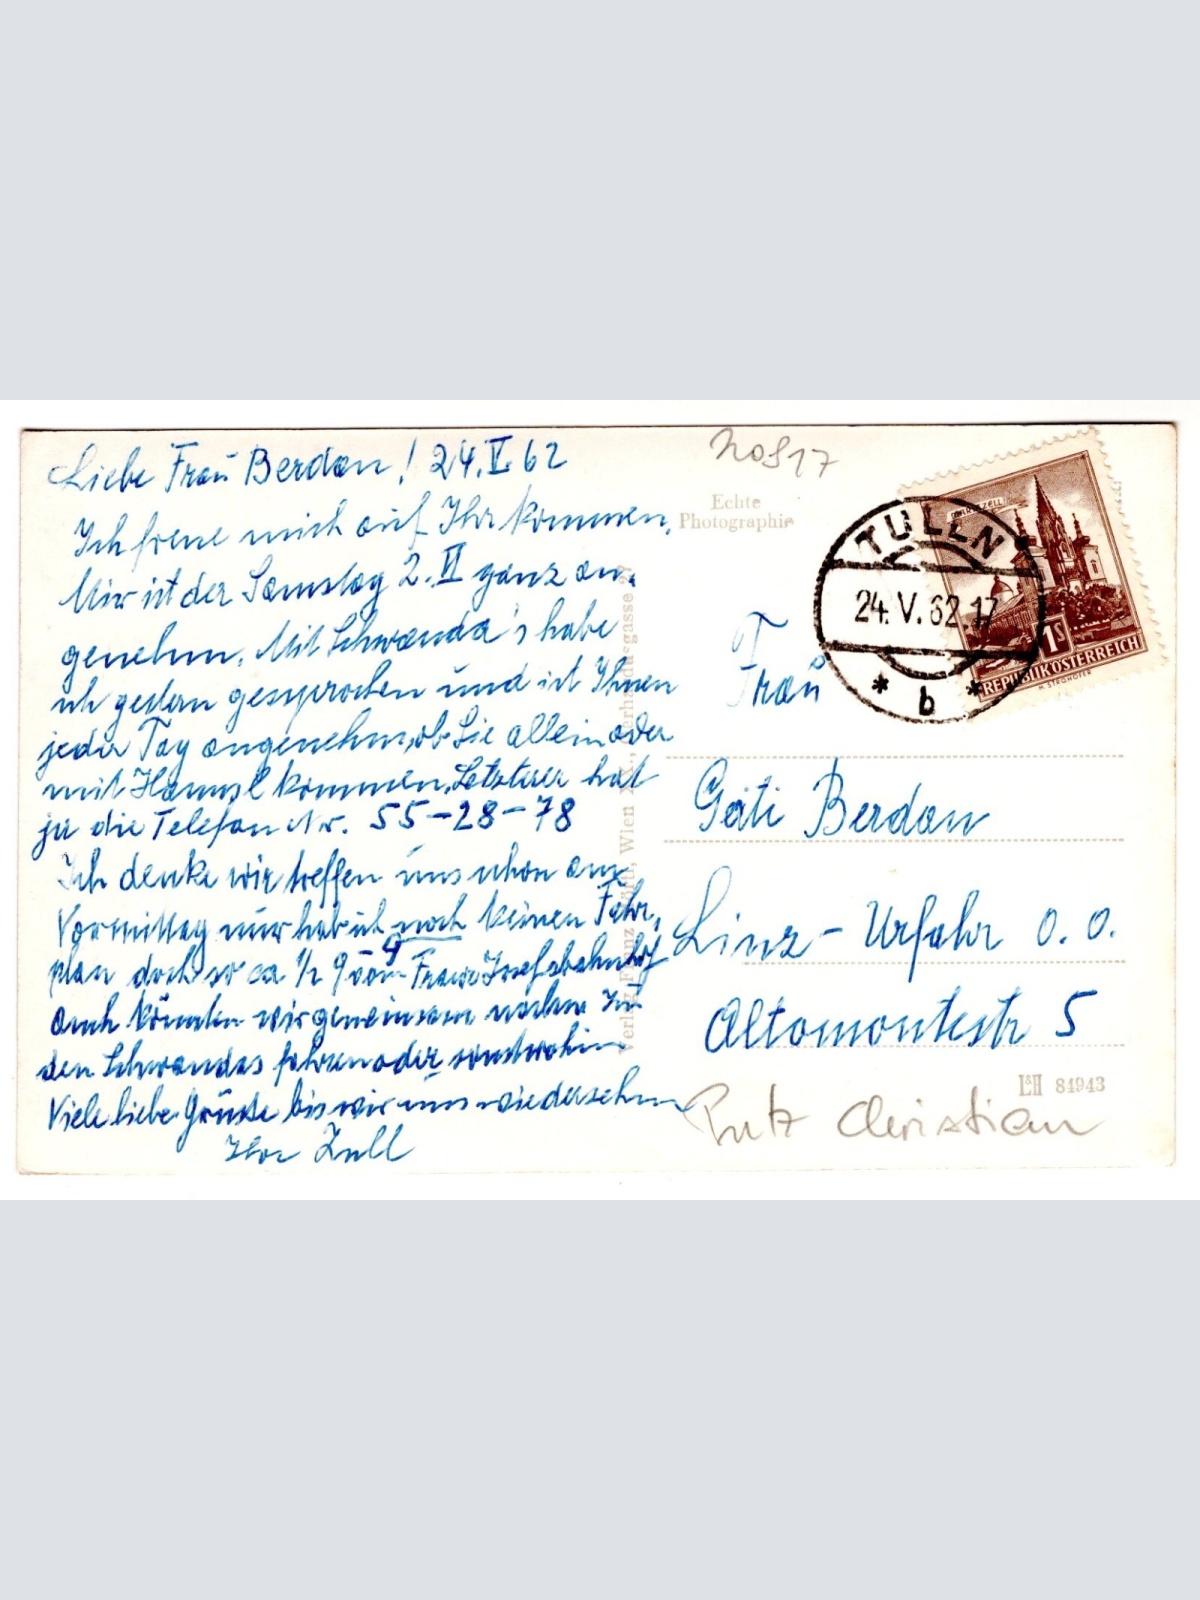 Liebe Frau Berdan! 24.V.62
Ich freue mich auf Ihr Kommen.
Mir ist der Samstag 2.VI ganz an-
genehm. Mit Schwanda's habe
ich gestern gesprochen und ist Ihnen
jeder Tag angenehm, ob Sie allein oder
mit Hannsl kommen. Letzterer hat
ja die Telefon Nr. 55-28-78
Ich denke wir treffen uns schon am
Vormittag nur hab ich noch keinen Fahr-
plan doch so ca 1/2 9 Franz Josefsbahnhof
auch könnten wir gemeinsam nachm zu
den Schwandas fahren oder sonstwohin
Viele liebe Grüsse bis wir uns wiedersehen
Ihre Zull
Echte
Photographie
20817
TULLN
24.V.62.17
* b *
MARIAZELL
1S
REPUBLIK ÖSTERREICH
H. STEGHÖFER
Frau
Gati Berdan
Linz - Urfahr O.O.
Altomontestr 5
L&H 84943
Putz Christian